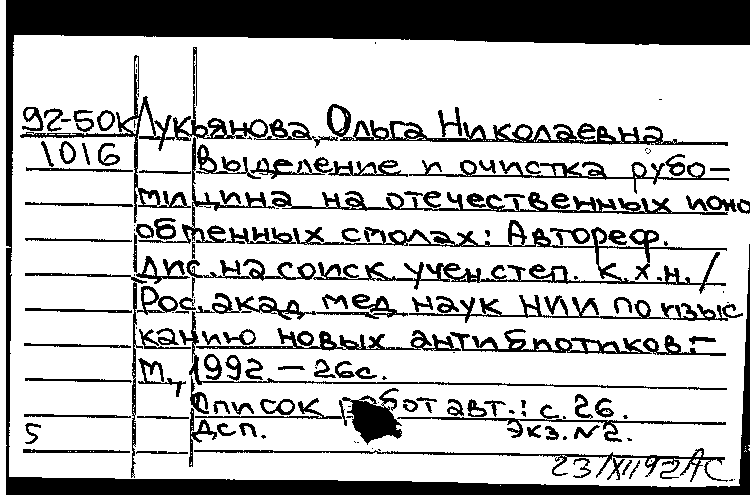 92-50к Лукьянова, Ольга Николаевна.
1016 Выделение и очистка рубо-
мицина на отечественных ионо
обменных смолах: Автореф.
Дис. на соиск учен. степ. к.х.н./
Рос. акад мед наук НИИ по изыс
канию новых антибиотиков. –
М., 1992. – 26с.
Список работ авт.: с. 26.
5 Дсп. Экз. №2.
23/XII92 АС